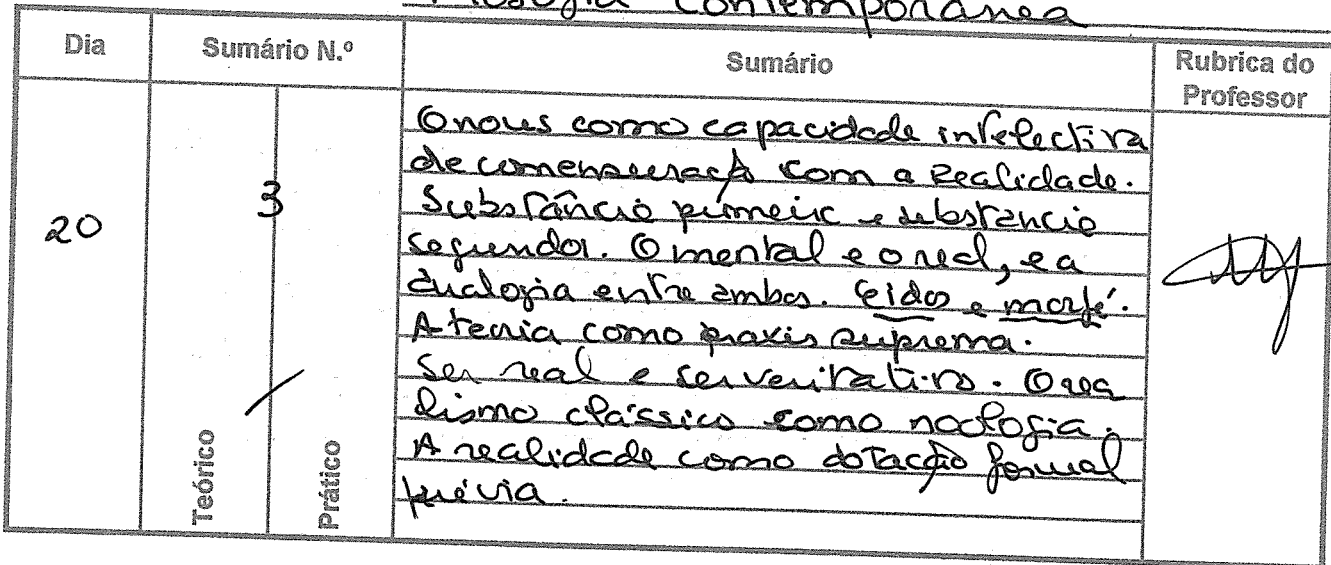 Filosofia Contemporânea
Dia
Sumário N.º
Sumário
Rubrica do
Professor
20
3
Teórico
Prático
O nous como capacidade intelectiva
de comensuração com a Realidade.
Substância primeira e substância
segunda. O mental e o real, e a
analogia entre ambos. Eidos e morfé.
A teoria como praxis suprema.
Ser real e ser veritativo. O rea
lismo clássico como noologia.
A realidade como dotacção formal
prévia.